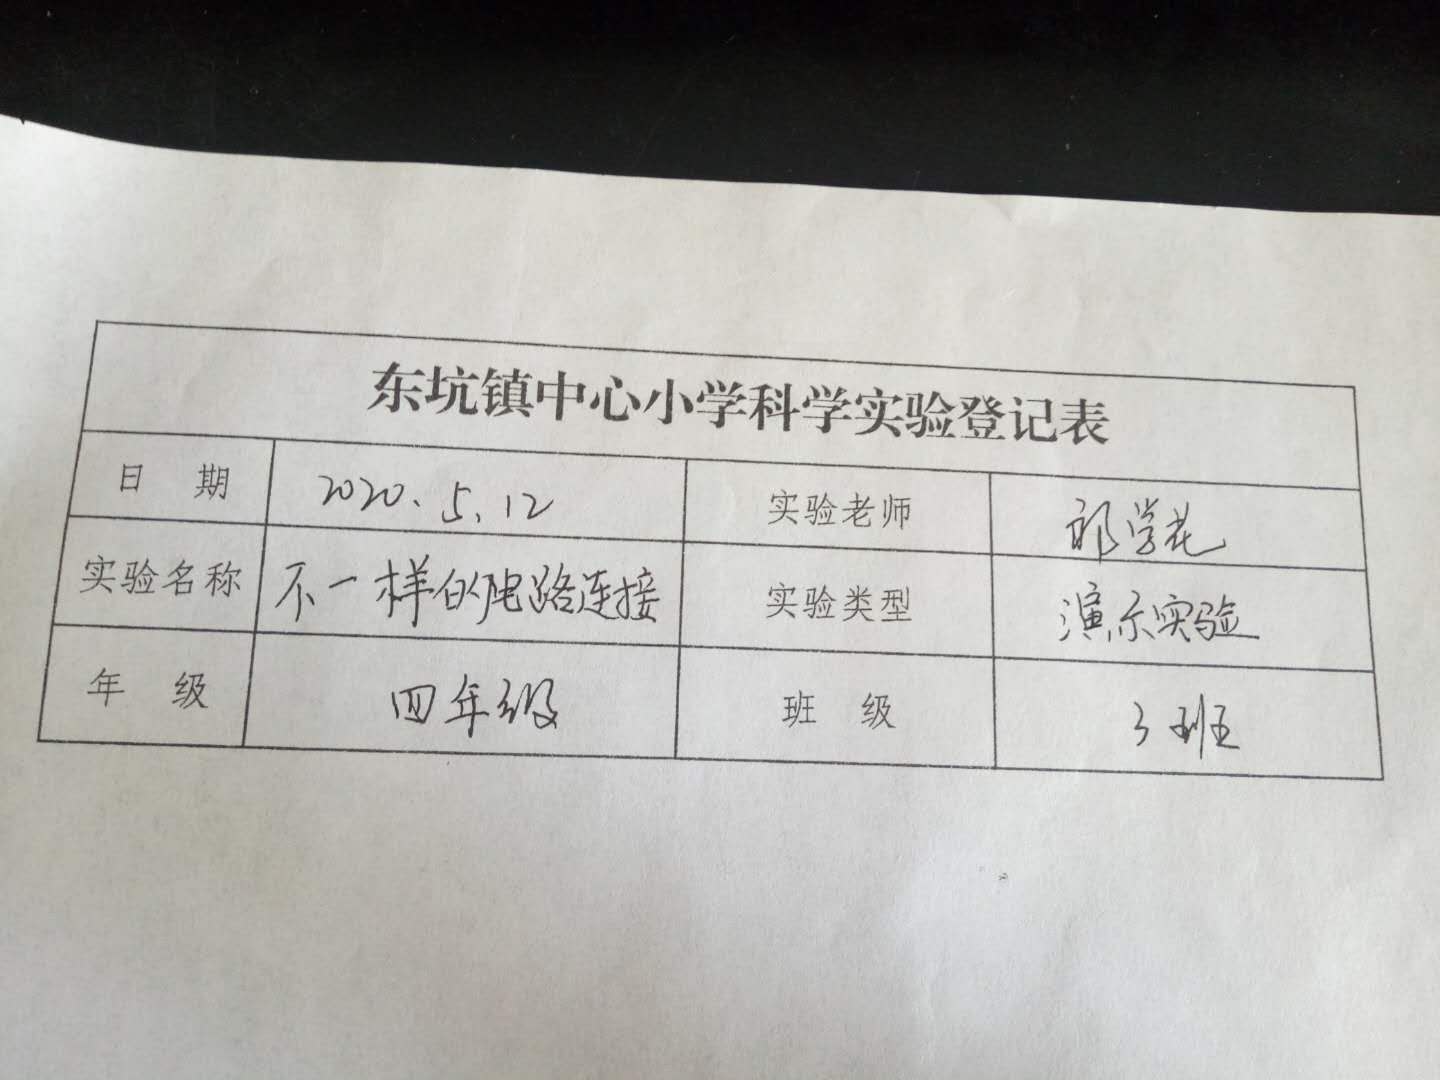 东坑镇中心小学科学实验登记表
日 期 2020.5.12 实验老师 郎学花
实验名称 不一样的电路连接 实验类型 演示实验
年 级 四年级 班 级 3班